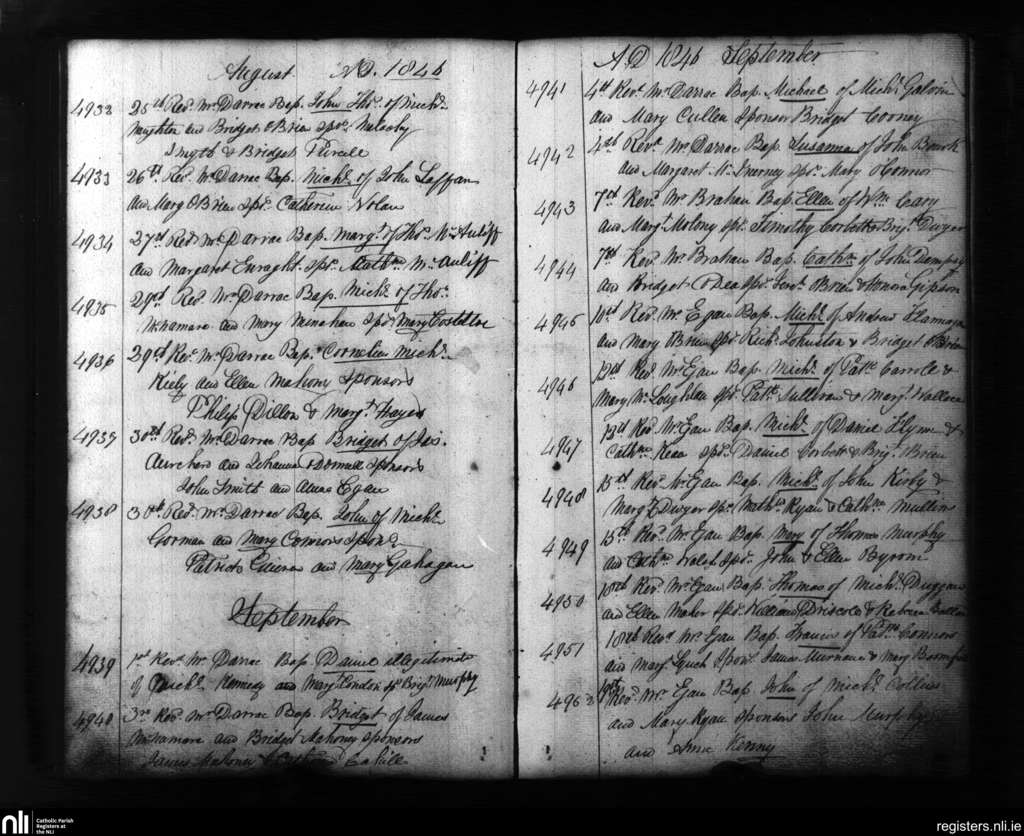 August AD. 1846
4932 25th Revd. Mr Darrac Bap. John Thos. of Michl.
Naughton and Bridget OBrien Spor.
Smyth & Bridget
4933 26th. Revd. Mr Darrac Bap. Michl. of John Laffan
and Mary OBrien Spr. Catherine Nolan
4934 27th Revd Mr Darrac Bap. Margt. of Thos. Mc Auliff
and Margaret Enraght Spr. Mc Auliff
4935 29th Revd. Mr Darrac Bap. Michl. of Thos.
McNamara and Mary Minahan Spr. Mary Costelloe
4936 29th Revd. Mr. Darrac Bap. Cornelius Michl.
Kiely and Ellen Mahony Sponsors
Philip Dillon & Margt. Hayes
4937 30th Revd. Mr Darrac Bap Bridget of Jas.
and Johanna ODonnell Sponsors
John Smith and Egan
4938 30th Revd. Mr Darrac Bap. John of Michl.
Gorman and Mary Connors Spons
Patrick and Mary Gahagan
September
4939 1st Revd. Mr Darrac Bap Daniel illegitimate
of Michl. Kennedy and Mary London Sp Brigt. Murphy
4940 3rd Revd. Mr Darrac Bap. Bridget of James
McNamara and Bridget Mahoney Sponsors
James Mahoney & Cahill
AD 1846 September
4941 4th Revd. Mr Darrac Bap. Michael of Michl. Galvin
and Mary Cullen Sponsor Bridget Cooney
4942 4th Revd. Mr Darrac Bap. Susanna of John Bourk
and Margaret Mc Inerney Spr. Mary OConnor
4943 7th Revd. Mr Brahan Bap. Ellen of Wm. Cary
and Margt. Molony Spr. Timothy Corbett & Brigt. Dwyer
4944 7th Revd. Mr Brahan Bap. Cathn. of John Dempsy
and Bridget ODea Spr. OBrien & Honora Gipson
4945 10th Revd. Mr Egan Bap. Michl. of Andrew Flannagan
and Mary OBrien Spr. Richd. Johnston & Bridget OBrien
4946 13th Revd. Mr Egan Bap. Michl. of Patk. Carrole &
Mary Mc Loughlan Spr. Patk. Sullivan & Margt. Wallace
4947 13th Revd. Mr Egan Bap. Michl. of Daniel Flynn &
Cathne. Keane Spr. Daniel Corbett & Brigt. Brien
4948 15th Revd. Mr Egan Bap. Michl. of John Kirby &
Margt. Dwyer Spr. Ryan & Cathn. Mullins
4949 15th. Revd. Mr. Egan Bap. Mary of Thomas Murphy
and Cathn. Spr. John & Ellen Byrom
4950 18th Revd. Mr Egan Bap. Thomas of Michl. Duggan
and Ellen Maher Spr. William Driscole & Rebecca
4951 18th Revd. Mr Egan Bap. Francis of Patk. Connors
and Margt. Lynch Spons. James Murnane & Mary
4952 19th Revd. Mr Egan Bap. John of Michl. Collins
and Mary Ryan Sponsors John Murphy
and Anne Kenny
nli
Catholic Parish
Registers at
the NLI
registers.nli.ie